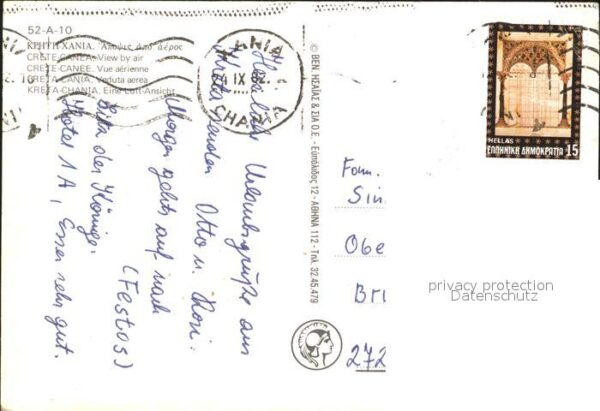 52-A-10
ΚΡΗΤΗ-ΧΑΝΙΑ. Ἄποψις ἀπό ἀέρος
CRETE-CANEA. View by air
CRETE-CANEE. Vue aérienne
KRETA-CANIA. Veduta aerea
KRETA-CHANIA. Eine Luft-Ansicht
ΧΑΝΙΑ
IX 82
CHANIA
HELLAS
ΕΛΛΗΝΙΚΗ ΔΗΜΟΚΡΑΤΙΑ 15
© ΒΕΝ. ΗΣΑΪΑΣ & ΣΙΑ Ο.Ε. - Εὐπόλιδος 12 - ΑΘΗΝΑ 112 - Τηλ. 32.45.479
Urlaubsgrüße aus
Kreta senden Otto u. Rosi.
Morgen gehts auf nach
(Festos)
Hotel 1A, Essen sehr gut.
Fam.
Sin
Obe
Bri
272
privacy protection
Datenschutz